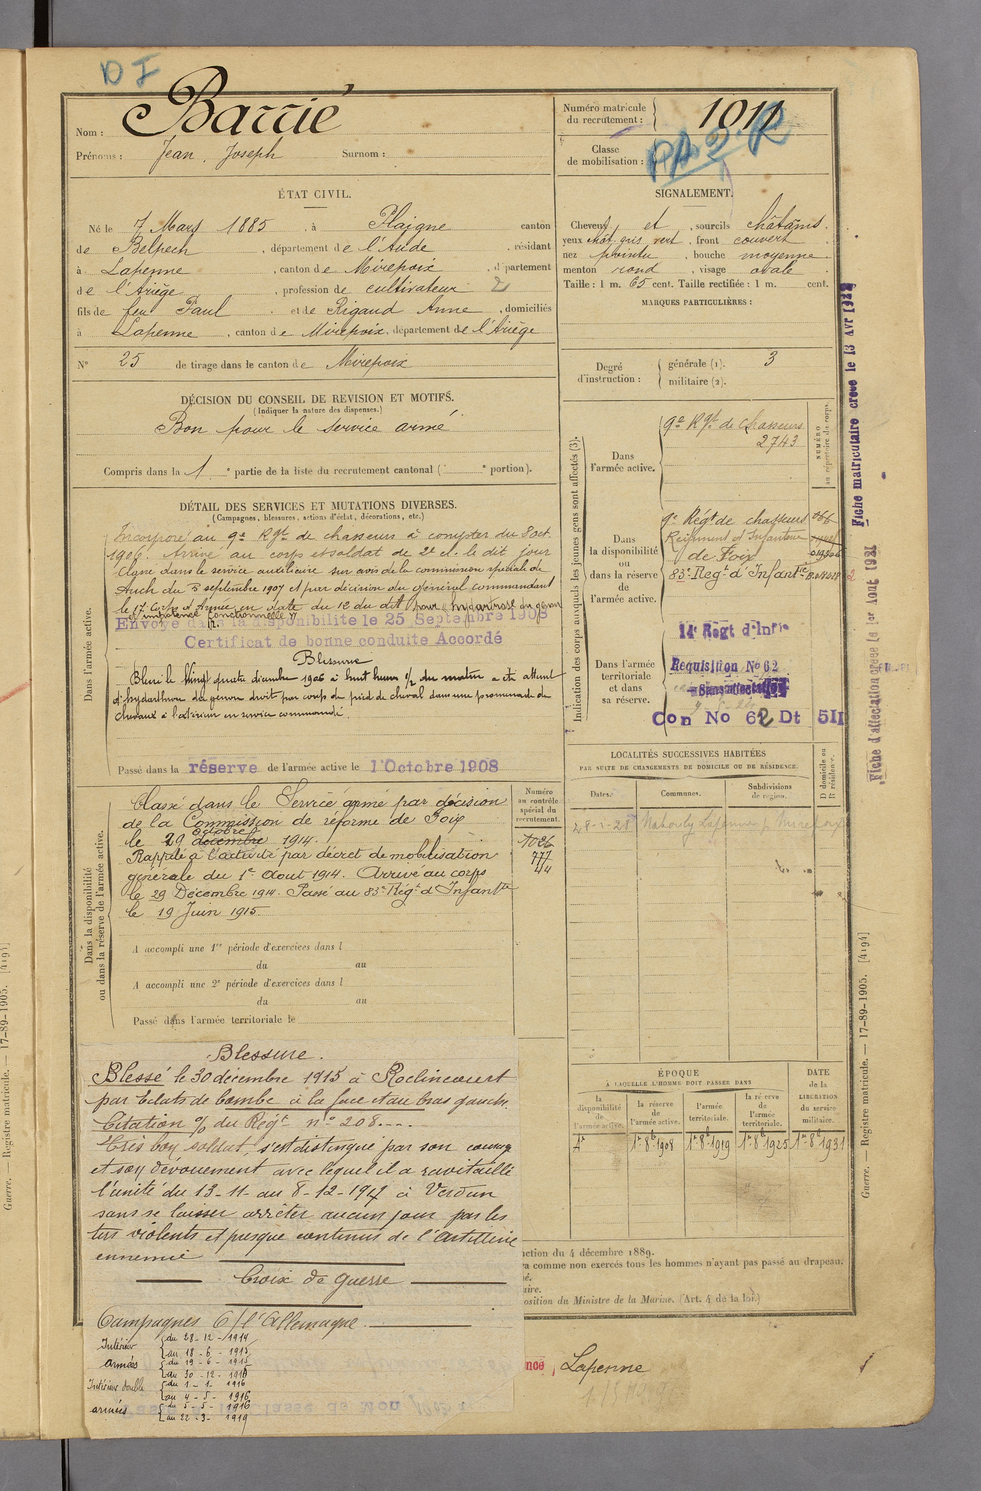 D I
Nom : Barrié
Prénoms : Jean, Joseph Surnom :
Numéro matricule du recrutement : 1011
Classe de mobilisation :
ÉTAT CIVIL.
Né le 7 Mars 1885 , à Plaigne canton
de Belpech , département de l'Aude , résidant
à Lapenne , canton de Mirepoix , département
de l'Ariège , profession de cultivateur 2
fils de feu Paul et de Rigaud Anne , domiciliés
à Lapenne , canton de Mirepoix, département de l'Ariège
N° 25 de tirage dans le canton de Mirepoix
DÉCISION DU CONSEIL DE REVISION ET MOTIFS.
(Indiquer la nature des dispenses.)
Bon pour le service armé
Compris dans la 1 e partie de la liste du recrutement cantonal ( e portion).
DÉTAIL DES SERVICES ET MUTATIONS DIVERSES.
(Campagnes, blessures, actions d'éclat, décorations, etc.)
Dans l'armée active.
Incorporé au 9e Rgt de chasseurs à compter du 8 oct
1906. Arrivé au corps et soldat de 2e cl. le dit jour
Classé dans le service auxiliaire sur avis de la commission spéciale de
Auch du 5 septembre 1907 et par décision du Général commandant
le 17e Corps d'Armée en date du 12 du dit pour hydarthrose du genou
et impotence fonctionnelle
Envoyé dans la disponibilité le 25 Septembre 1908
Certificat de bonne conduite Accordé
Blessure
Blessé le vingt quatre décembre 1906 à huit heures 1/2 du matin a été atteint
d'hydarthrose du genou droit par coup de pied de cheval dans une promenade de
chevaux à l'extérieur en service commandé.
Passé dans la réserve de l'armée active le 1 Octobre 1908
Dans la disponibilité ou dans la réserve de l'armée active.
Classé dans le Service armé par décision
de la Commission de réforme de Foix
octobre
le 29 décembre 1914.
Rappelé à l'activité par décret de mobilisation
générale du 1er Août 1914. Arrivé au corps
le 29 Décembre 1914. Passé au 83e Régt d'Infantie
le 19 Juin 1915.
Numéro au contrôle spécial du recrutement.
1026
777
44
A accompli une 1re période d'exercices dans l
du au
A accompli une 2e période d'exercices dans l
du au
Passé dans l'armée territoriale le
Blessure.
Blessé le 30 décembre 1915 à Roclincourt
par Eclats de bombe à la face et au bras gauche.
Citation o/ du Régt n° 208 ---
Très bon soldat, s'est distingué par son courage
et son dévouement avec lequel il a ravitaillé
l'unité du 13-11- au 8-12-1917 à Verdun
sans se laisser arrêter aucun jour par les
tirs violents et presque continus de l'Artillerie
ennemie
Croix de Guerre
Campagnes C/ l'Allemagne
Intérieur du 28-12-1914
au 18-6-1915
armées du 19-6-1915
au 30-12-1915
Intérieur double du 1-1-1916
au 4-5-1916
armées du 5-5-1916
au 22-3-1919
SIGNALEMENT.
Cheveux et , sourcils châtains.
yeux chat. gris vert , front couvert
nez pointu , bouche moyenne
menton rond , visage ovale
Taille : 1 m. 65 cent. Taille rectifiée : 1 m. cent.
MARQUES PARTICULIÈRES :
Degré d'instruction : générale (1). 3
militaire (2).
Indication des corps auxquels les jeunes gens sont affectés (3).
NUMÉRO au répertoire du corps.
Dans l'armée active.
9e Rgt de Chasseurs
2743
Dans la disponibilité ou dans la réserve de l'armée active.
9e Régt de chasseurs
Régiment d'Infanterie
de Foix
83e Régt d'Infantie
Dans l'armée territoriale et dans sa réserve.
14e Régt d'Infie
Requisition No 62
Sans affectation
Con No 62 Dt 511
LOCALITÉS SUCCESSIVES HABITÉES
PAR SUITE DE CHANGEMENTS DE DOMICILE OU DE RÉSIDENCE.
Dates. Communes. Subdivisions de region. D domicile ou R résidence.
ÉPOQUE
À LAQUELLE L'HOMME DOIT PASSER DANS
DATE de la LIBÉRATION du service militaire.
la disponibilité de l'armée active. la réserve de l'armée active. l'armée territoriale. la réserve de l'armée territoriale.
1er 8bre 1908 1er 8bre 1919 1er 8bre 1925 1er 8bre 1931
ction du 4 décembre 1889.
ra comme non exercés tous les hommes n'ayant pas passé au drapeau.
né.
aire.
osition du Ministre de la Marine. (Art. 4 de la loi.)
nce, Lapenne
Fiche matriculaire créée le 13 Avr 1922
Fiche d'affectation créée le 1er Août 1921
Guerre. — Registre matricule. — 17-89-1905. [4194]
Guerre. — Registre matricule. — 17-89-1905. [4194]